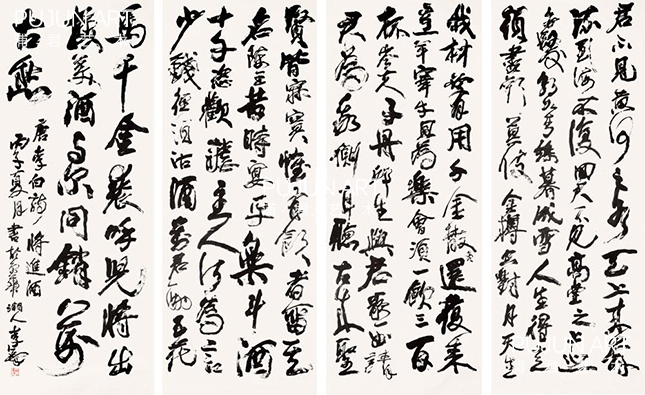 君不見黃河之水天上来奔
流到海不復回又不見高堂之
髮朝如青絲暮成雪人生得意
須盡歡莫使金樽空對月天生
我材必有用千金散盡還復来
烹羊宰牛且為樂會須一飲三百
杯岑夫子丹邱生與君歌一曲請
君為我側耳聽古来聖
賢皆寂寞惟有飲者留其
名陳王昔時宴平樂斗酒
十千恣歡謔主人何為言
少錢徑須沽酒對君酌五花
馬千金裘呼兒將出
換美酒與尔同銷萬
古愁
唐李白詩將進酒
丙子夏月書於京華湘人李
PUJUN ART